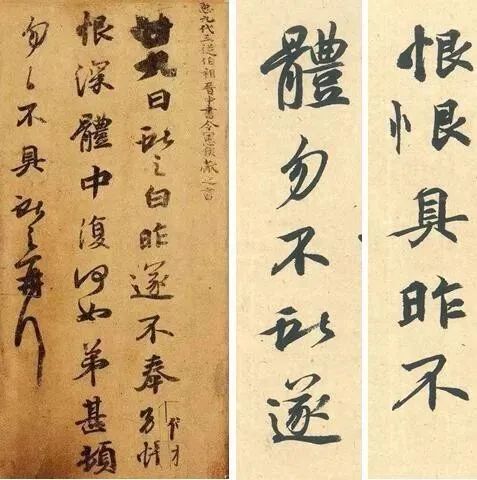 九代三從伯祖晉中書令憲侯獻之書
廿九日獻之白昨遂不奉別悵
恨深體中復何如弟甚頓
勿々不具獻之再拜
體勿不獻遂
恨恨具昨不